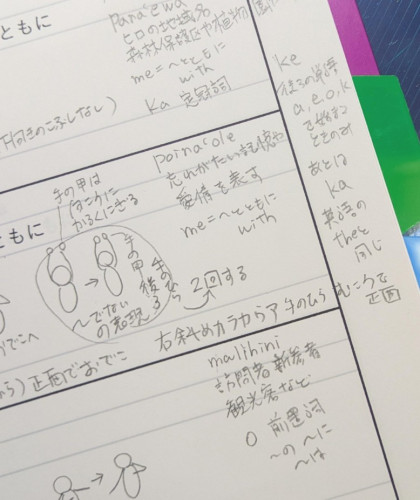 ともに
pana'ewa
ヒロの地域名
森林保護区や植物園
me=へとともに
with
ka 定冠詞
ke
後ろの単語
a,e,o,k
で始まる
ときのみ
あとは
ka
英語の
theと
同じ
手の甲は
かるくにぎる
ともに
poina'ole
忘れがたい記憶や
愛情を表す
me=へとともに
with
手の甲
〜でない
の表現
2回する
右斜めカラからア手のひら むこうで
正面
正面でおでこ
malihini
訪問者新参者
観光客など
o 前置詞
〜の 〜に
〜は